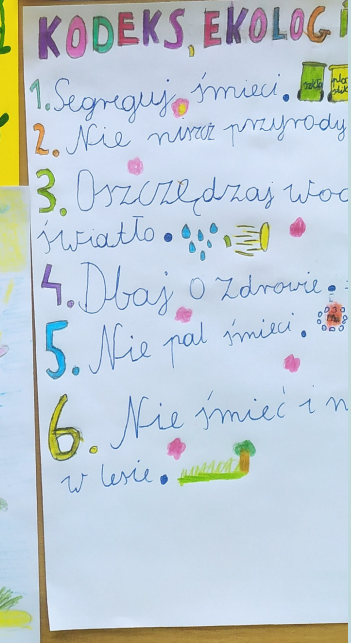 KODEKS, EKOLOGI
1. Segreguj śmieci.
2. Nie niszcz przyrody
3. Oszczędzaj wod
światło.
4. Dbaj o zdrowie.
5. Nie pal śmieci.
6. Nie śmieć i n
w lesie.